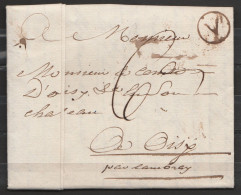 A
Monsieur
Monsieur le comte
D'oisy
chateau
A Oisy
par cambray